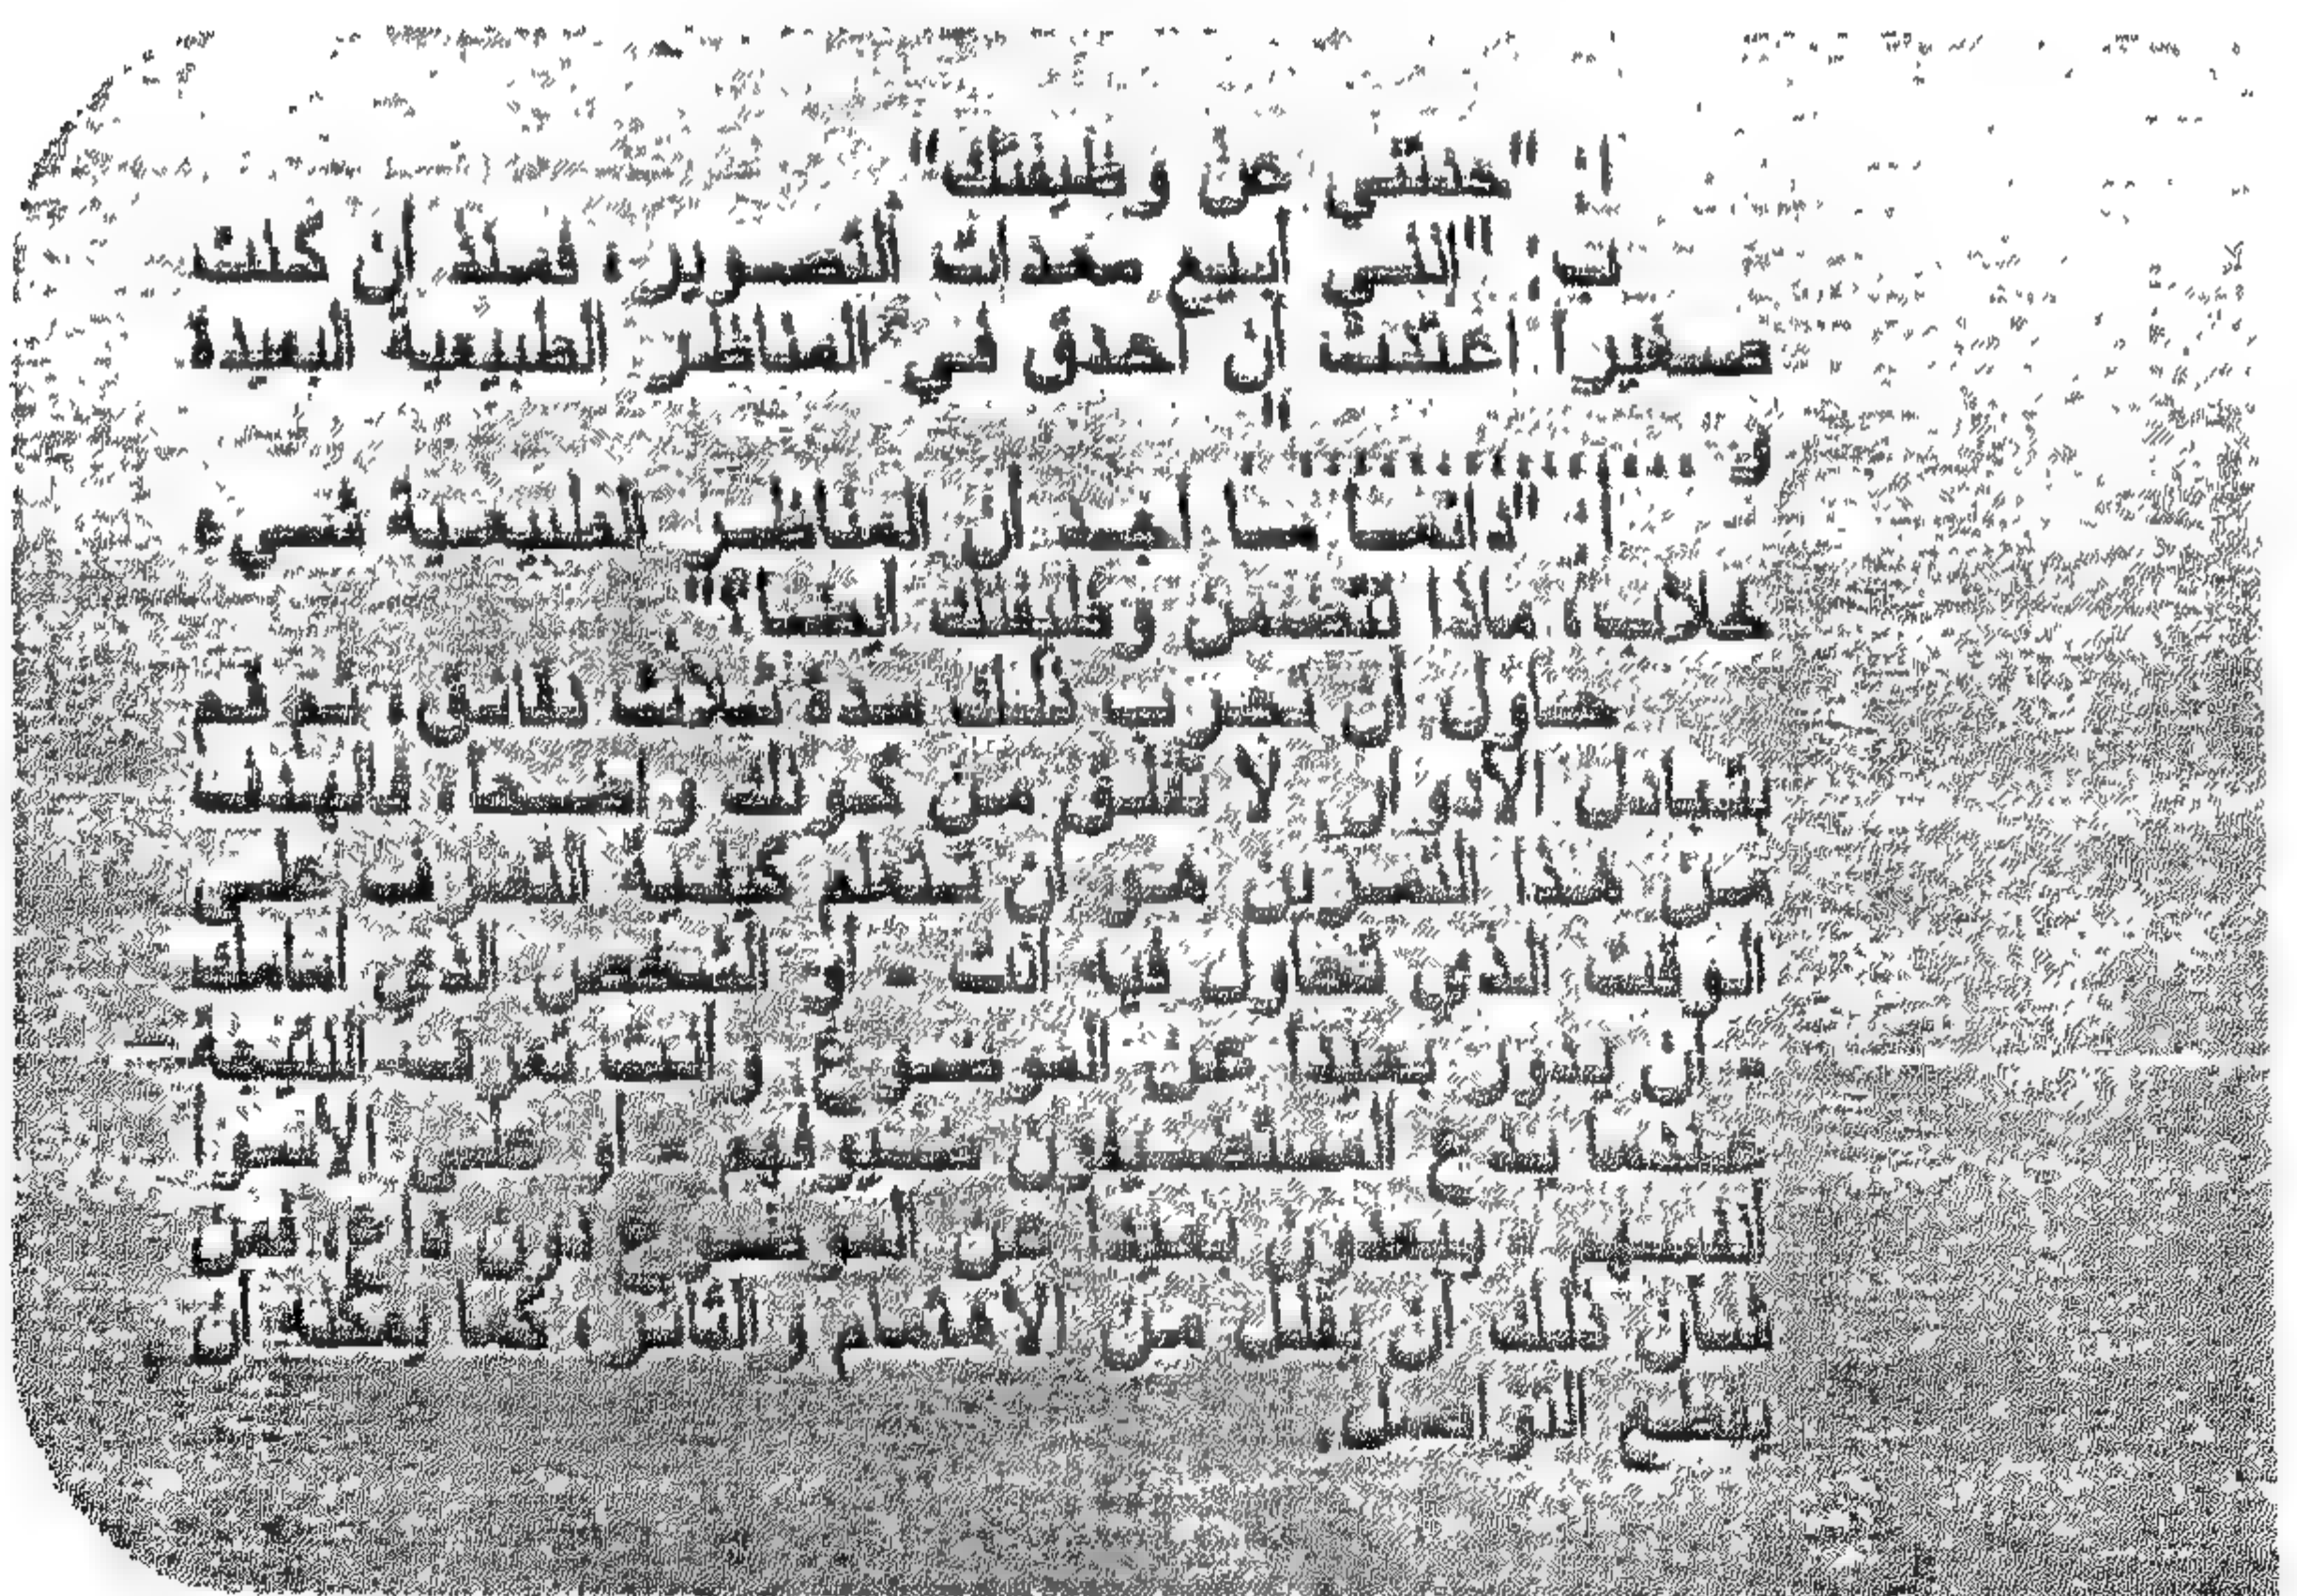 أ: "حدثني عن وظيفتك"
ب: "إنني أبيع معدات التصوير، فمنذ أن كنت
صغيرا اعتدت أن أحدق في المناظر الطبيعية البعيدة
و ....................."
أ: "دائما ما أجد أن المناظر الطبيعية شيء
خلاب، ماذا تتضمن وظيفتك أيضا؟"
حاول أن تجرب ذلك مدة ثلاث دقائق، ثم قم
بتبادل الأدوار. لا تقلق من كونك واضحا، فالهدف
من هذا التمرين هو أن تتعلم كيفية التعرف على
الوقت الذي تحاول فيه أنت - أو الشخص الذي أمامك
- أن يدور بعيدا عن الموضوع. وأنت تعرف أنه
عندما يدع المستمعون عقولهم - أو حتى الأسوأ
ألسنتهم - يدورون بعيدا عن الموضوع دون داع، فمن
شأن ذلك أن يقلل من الاهتمام والتأثير، كما يمكنه أن
يقطع التواصل.